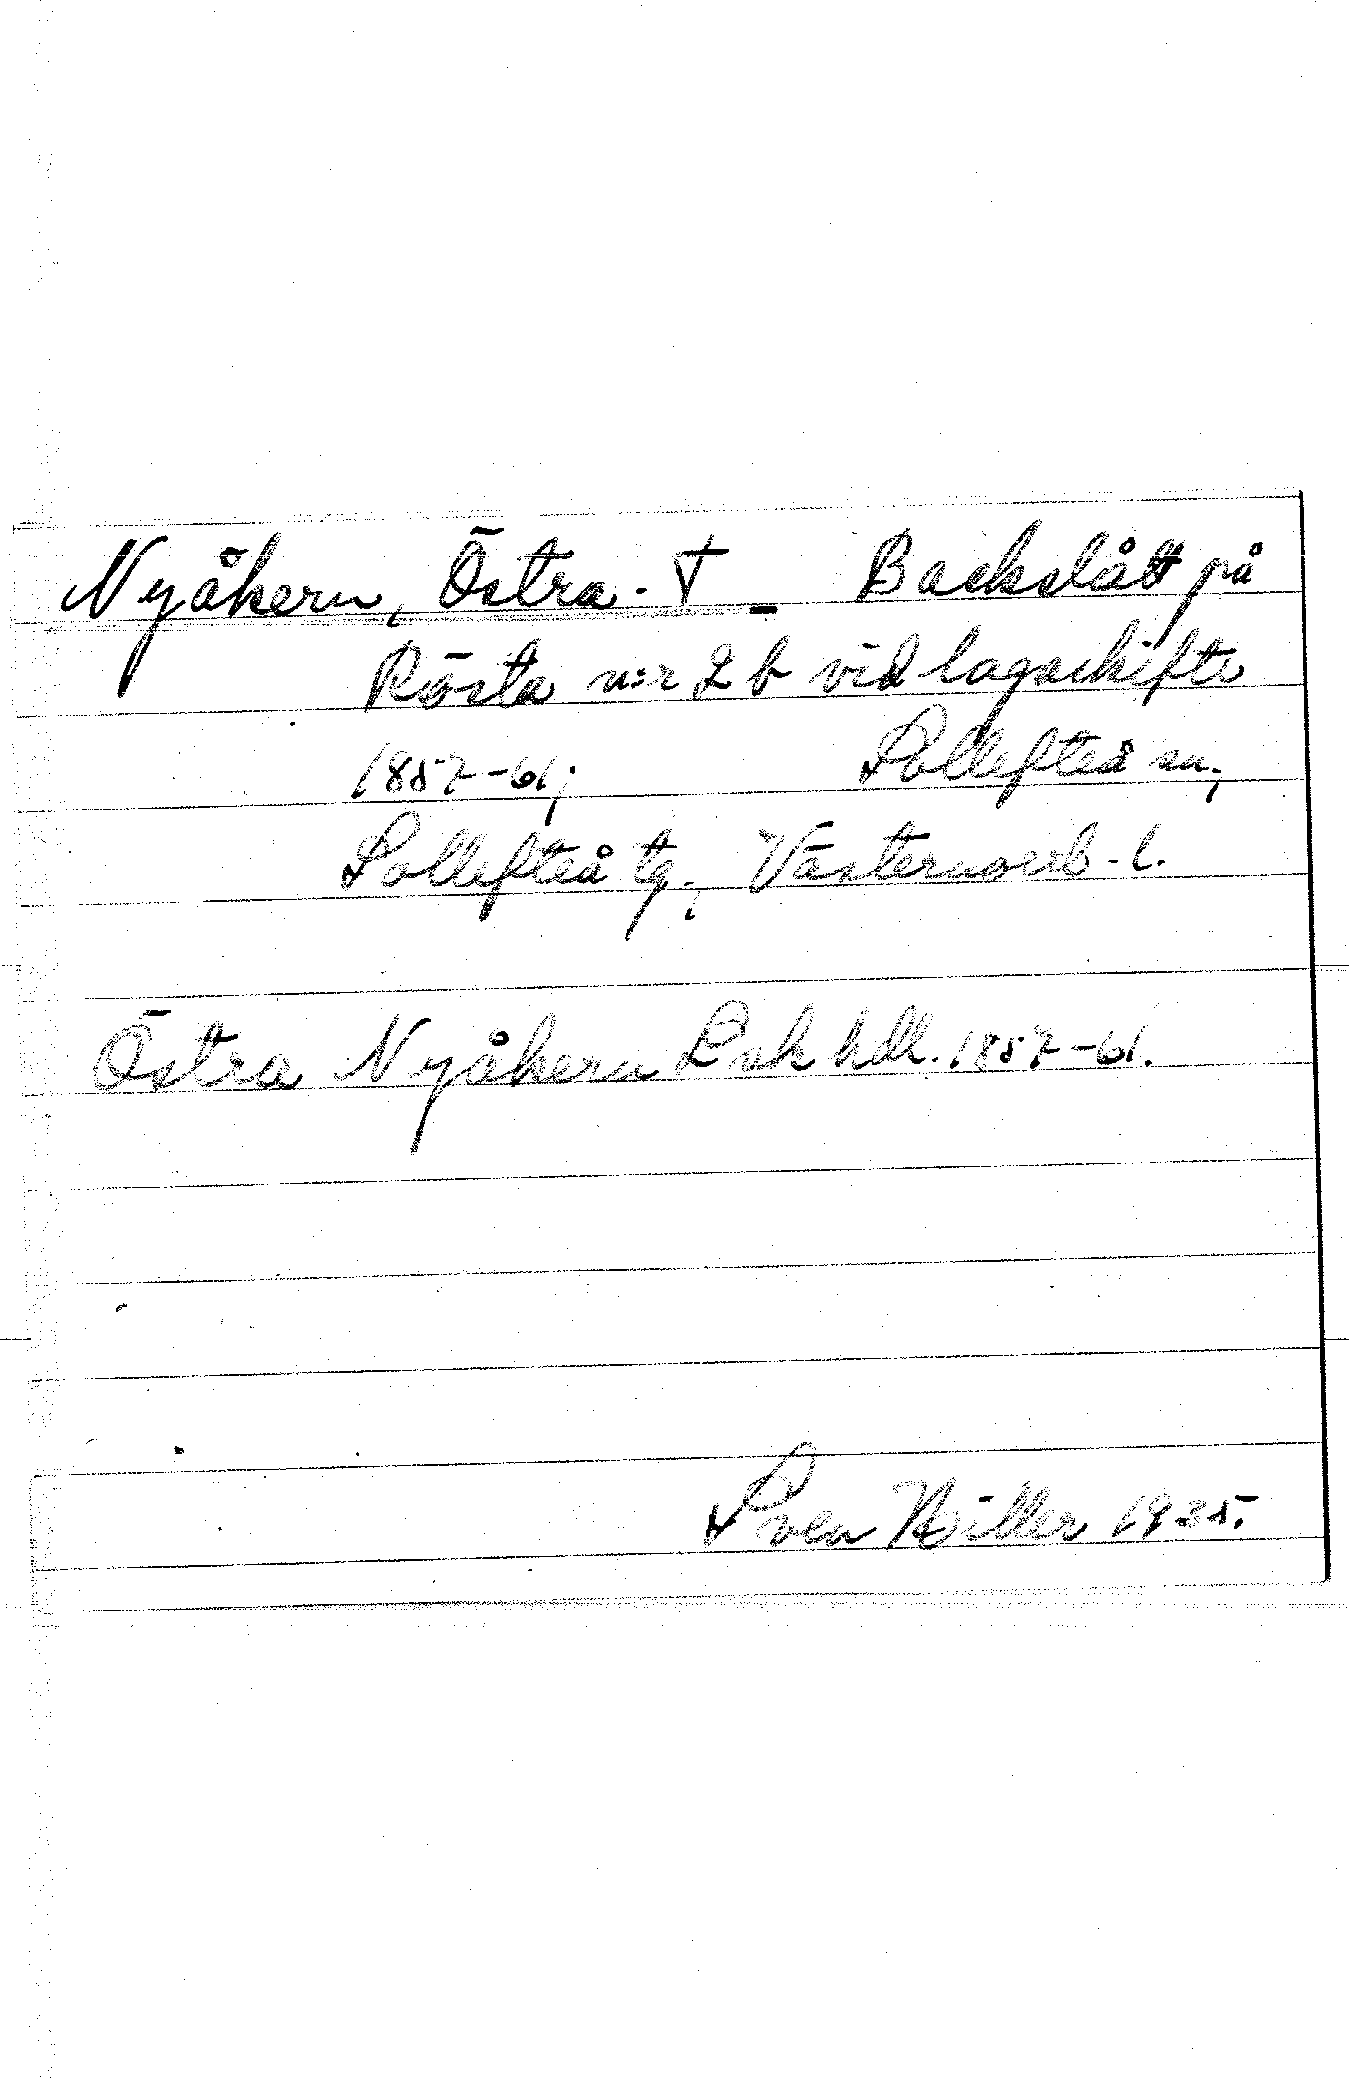 Nyåkern, Östra. † _ Backslått på
Rösta n:r 2 b vid lagaskifte
1857-61; Sollefteå sn;
Sollefteå tg.; Västernorrl. l.
Östra Nyåkern Lsk hdl. 1857-61.
Sven Hiller 1935.